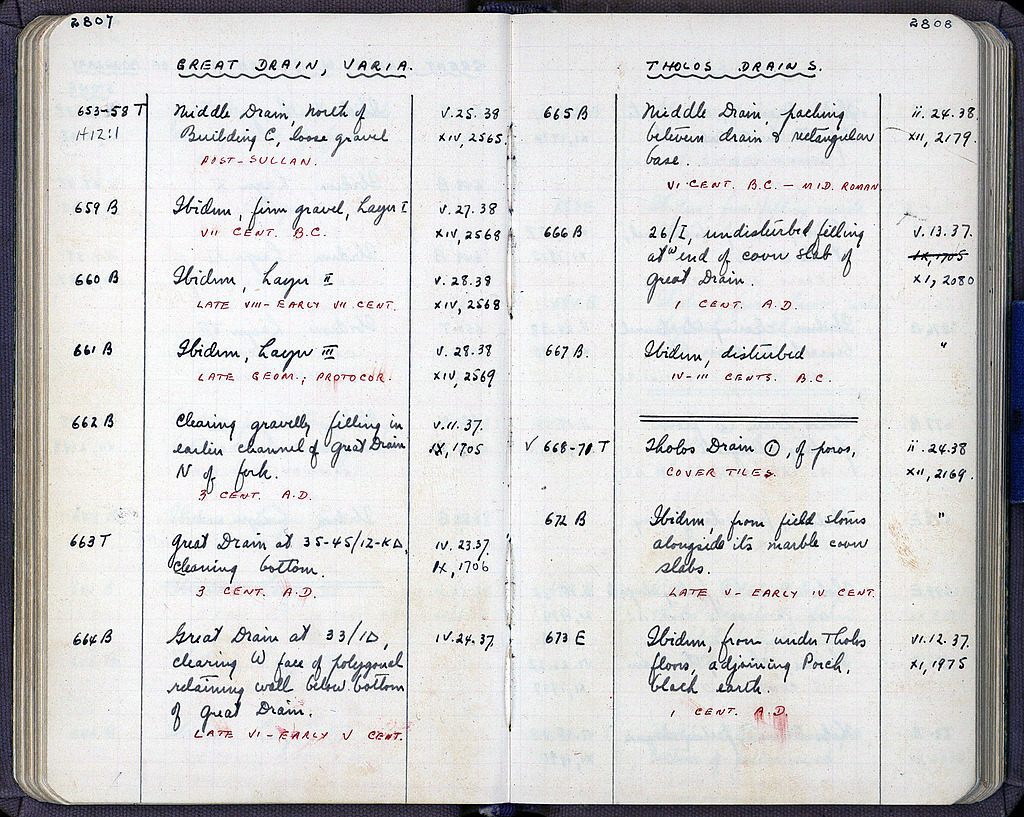 2807
GREAT DRAIN, VARIA.
653-58 T Middle Drain, North of V.25.38
H12:1 Building C, loose gravel XIV, 2565.
POST-SULLAN.
659 B Ibidem, firm gravel, Layer I V.27.38
VII CENT. B.C. XIV, 2568
660 B Ibidem, Layer II V.28.38
LATE VIII-EARLY VII CENT. XIV, 2568
661 B Ibidem, Layer III V.28.38
LATE GEOM., PROTOCOR. XIV, 2569
662 B Clearing gravelly filling in V.11.37.
earlier channel of Great Drain IX, 1705
N of fork.
3 CENT. A.D.
663 T Great Drain at 35-45/12-KΔ, IV.23.37.
cleaning bottom. IX, 1706
3 CENT. A.D.
664 B Great Drain at 33/ΙΔ, IV.24.37.
clearing W face of polygonal
retaining wall below bottom
of Great Drain.
LATE VI-EARLY V CENT.
2808
THOLOS DRAINS.
665 B Middle Drain, packing ii.24.38.
between drain & rectangular XII, 2179.
base.
VI CENT. B.C. - MID. ROMAN.
666 B 26/I, undisturbed filling V.13.37.
at W end of cover slab of IX, 1705
Great Drain. XI, 2080
1 CENT. A.D.
667 B. Ibidem, disturbed "
IV-III CENTS. B.C.
√ 668-71 T Tholos Drain ①, of poros, ii.24.38
COVER TILES. XII, 2169.
672 B Ibidem from field stones "
alongside its marble cover
slabs.
LATE V-EARLY IV CENT.
673 E Ibidem, from under Tholos VI.12.37.
floors, adjoining Porch, XI, 1975
black earth.
1 CENT. A.D.